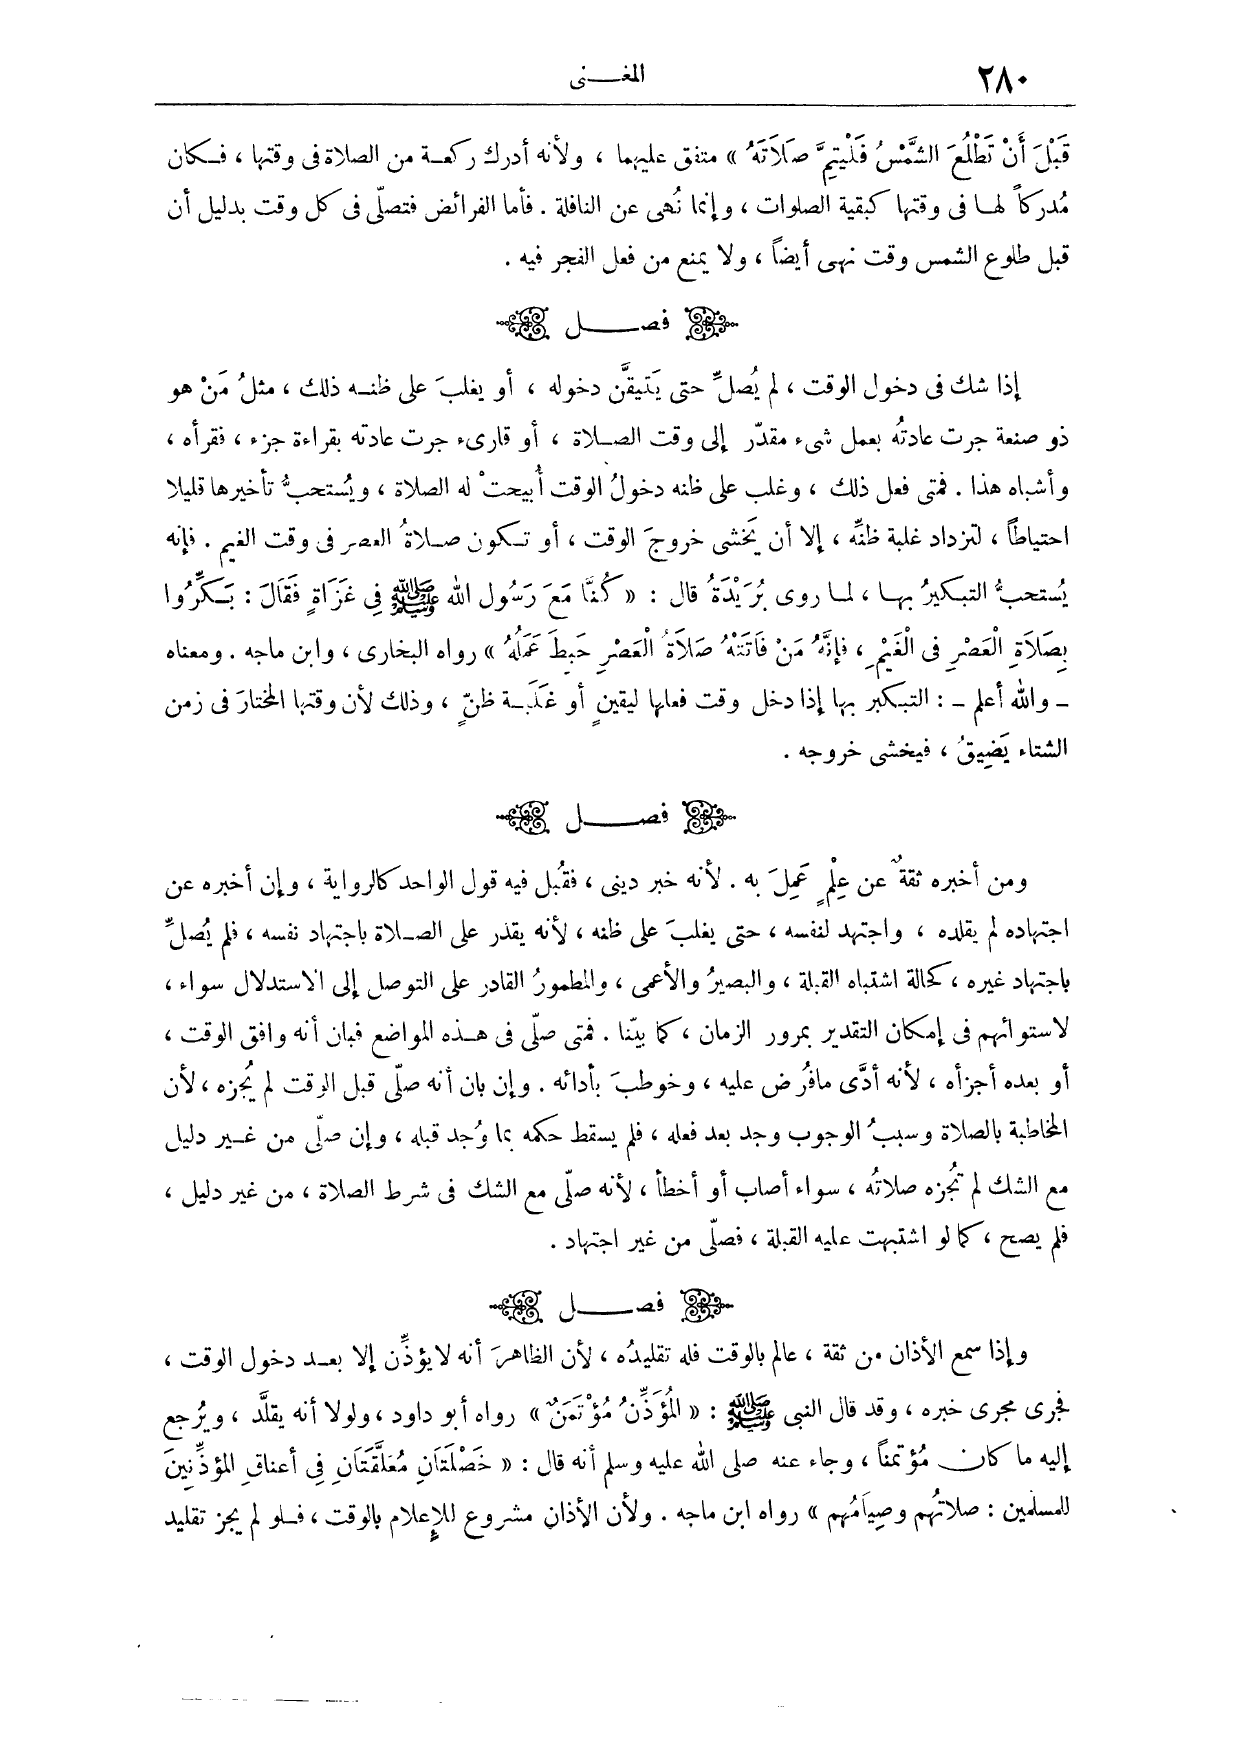 ٢٨٠
المغـــنى
قَبْلَ أَنْ تَطْلُعَ الشَّمْسُ فَلْيُتِمَّ صَلَاتَهُ » متفق عليهما ، ولأنه أدرك ركعـة من الصلاة فى وقتها ، فـكان
مُدركاً لهـا فى وقتها كبقية الصلوات ، وإنما نُهى عن النافلة . فأما الفرائض فتصلّى فى كل وقت بدليل أن
قبل طلوع الشمس وقت نهى أيضاً ، ولا يمنع من فعل الفجر فيه .
فصـــل
إذا شك فى دخول الوقت ، لم يُصلِّ حتى يَتيقَّن دخوله ، أو يغلبَ على ظنـه ذلك ، مثلُ مَنْ هو
ذو صنعة جرت عادتُه بعمل شىء مقدّر إلى وقت الصـلاة ، أو قارىء جرت عادته بقراءة جزء ، فقرأه ،
وأشباه هذا . فمتى فعل ذلك ، وغلب على ظنه دخولُ الوقت أُبيحتْ له الصلاة ، ويُستحبُّ تأخيرها قليلا
احتياطاً ، لتزداد غلبة ظنِّه ، إلا أن يَخشى خروجَ الوقت ، أو تـكون صـلاةُ العصر فى وقت الغيم . فإنه
يُستحبُّ التبكيرُ بهـا ، لمـا روى بُرَيْدَةُ قال : « كُنَّا مَعَ رَسُول الله ﷺ فِى غَزَاةٍ فَقَالَ : بَـكِّرُوا
بِصَلَاةِ الْعَصْرِ فى الْغَيْمِ ، فإنَّهُ مَنْ فَاتَتْهُ صَلَاةُ الْعَصْرِ حَبِطَ عَمَلُهُ » رواه البخارى ، وابن ماجه . ومعناه
ـ والله أعلم ـ : التبـكير بها إذا دخل وقت فعلها ليقينٍ أو غَلَبـة ظنّ ، وذلك لأن وقتها المختارَ فى زمن
الشتاء يَضِيقُ ، فيخشى خروجه .
فصـــل
ومن أخبره ثقةٌ عن عِلْمٍ عَمِلَ به . لأنه خبر دينى ، فقُبل فيه قول الواحد كالرواية ، وإن أخبره عن
اجتهاده لم يقلده ، واجتهد لنفسه ، حتى يغلبَ على ظنه ، لأنه يقدر على الصـلاة باجتهاد نفسه ، فلم يُصلِّ
باجتهاد غيره ، كحالة اشتباه القبلة ، والبصيرُ والأعمى ، والمطمورُ القادر على التوصل إلى الاستدلال سواء ،
لاستوائهم فى إمكان التقدير بمرور الزمان ، كما بيّنا . فمتى صلّى فى هـذه المواضع فبان أنه وافق الوقت ،
أو بعده أجزأه ، لأنه أدَّى مافُرض عليه ، وخوطبَ بأدائه . وإن بان أنه صلّى قبل الوقت لم يُجزه ، لأن
المخاطبة بالصلاة وسببُ الوجوب وجد بعد فعله ، فلم يسقط حكمه بما وُجد قبله ، وإن صلّى من غـير دليل
مع الشك لم تُجزه صلاتُه ، سواء أصاب أو أخطأ ، لأنه صلّى مع الشك فى شرط الصلاة ، من غير دليل ،
فلم يصح ، كما لو اشتبهت عليه القبلة ، فصلّى من غير اجتهاد .
فصـــل
وإذا سمع الأذان من ثقة ، عالم بالوقت فله تقليدُه ، لأن الظاهرَ أنه لايؤذِّن إلا بعـد دخول الوقت ،
فجرى مجرى خبره ، وقد قال النبى ﷺ : « الُمُؤَذِّنُ مُؤْتَمَنٌ » رواه أبو داود ، ولولا أنه يقلَّد ، ويُرجع
إليه ما كان مُؤتمناً ، وجاء عنه صلى الله عليه وسلم أنه قال : « خَصْلَتَانِ مُعَلَّقَتَانِ فِى أعناقِ المؤذِّنِينَ
للمسلمين : صلاتُهم وصِيامُهم » رواه ابن ماجه . ولأن الأذان مشروع للإعلام بالوقت ، فـلو لم يجز تقليد